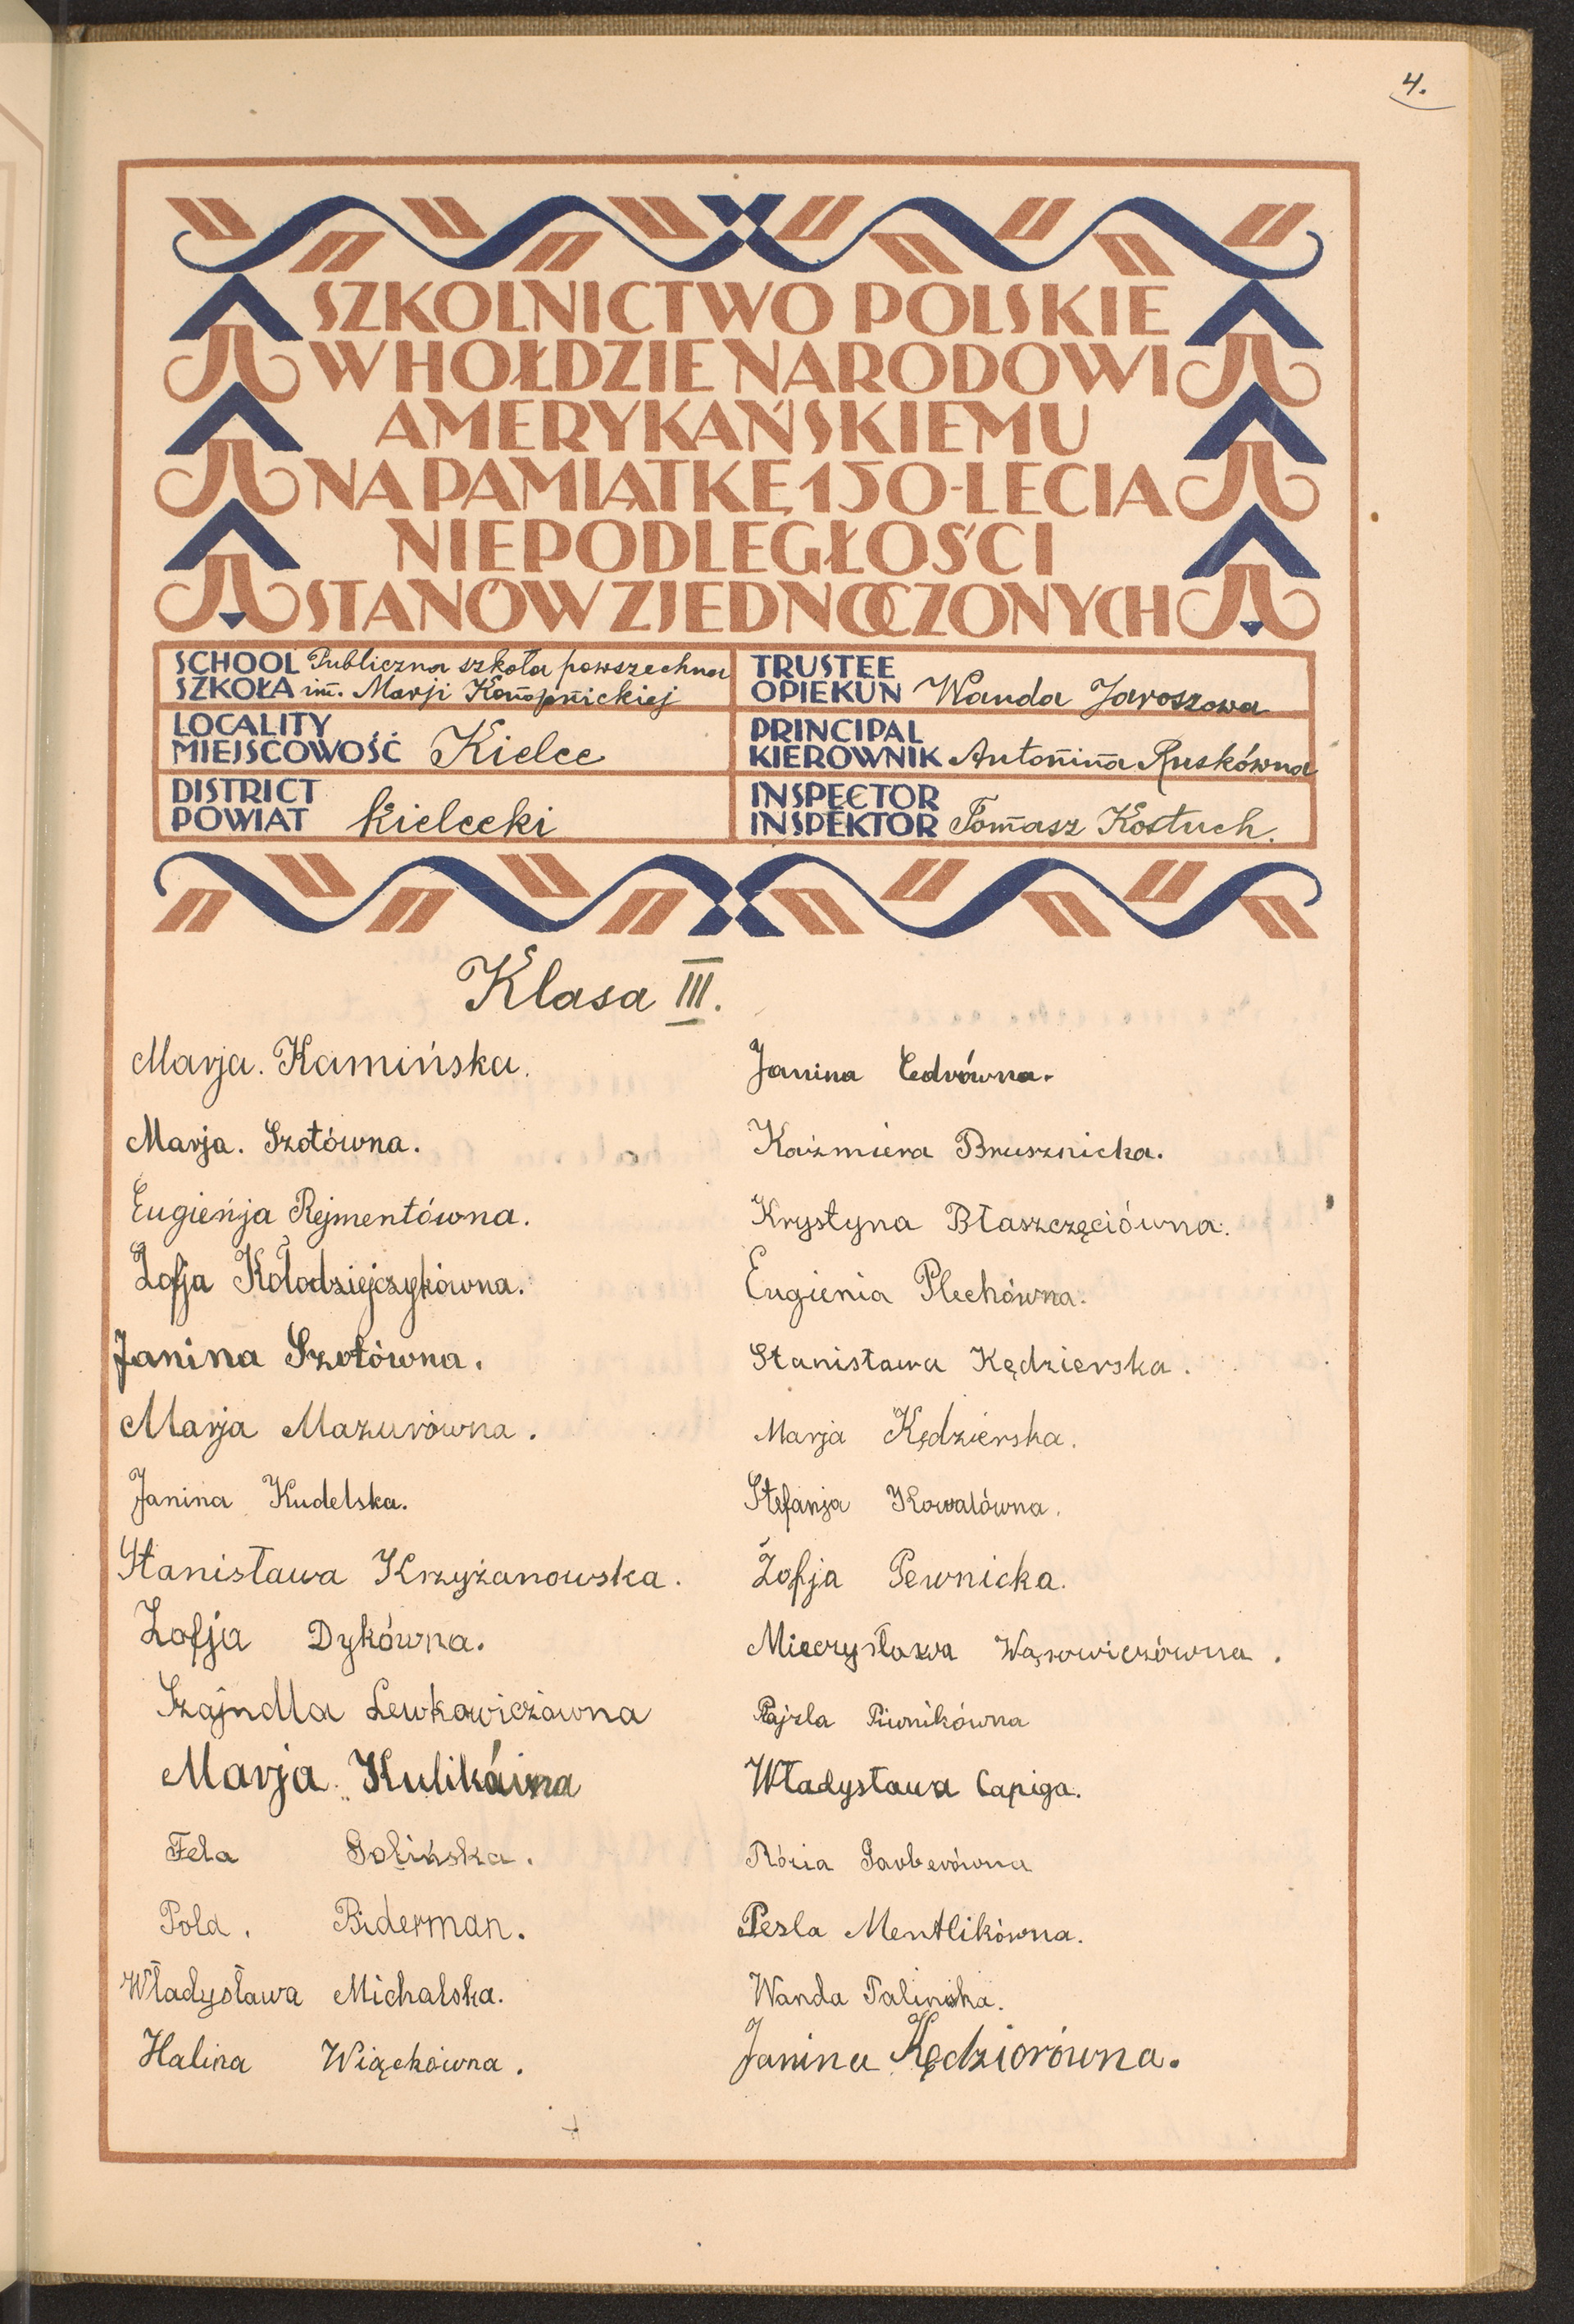 4.
SZKOLNICTWO POLSKIE
W HOŁDZIE NARODOWI
AMERYKAŃSKIEMU
NA PAMIĄTKĘ 150-LECIA
NIEPODLEGŁOŚCI
STANÓW ZJEDNOCZONYCH
SCHOOL Publiczna szkoła powszechna
SZKOŁA im. Marji Konopnickiej
TRUSTEE
OPIEKUN Wanda Jaroszowa
LOCALITY
MIEJSCOWOŚĆ Kielce
PRINCIPAL
KIEROWNIK Antonina Ruskówna
DISTRICT
POWIAT Kielecki
INSPECTOR
INSPEKTOR Tomasz Kostuch.
Klasa III.
Marja. Kamińska.
Marja. Szotówna.
Eugieńja Rejmentówna.
Zofja Kołodziejczykówna.
Janina Szotówna.
Marja Mazurówna.
Janina Kudelska.
Stanisława Krzyżanowska.
Zofja Dykówna.
Szajndla Lewkowiczówna
Marja. Kulikówna
Fela Golińska.
Pola. Biderman.
Władysława Michalska.
Halina Wiąckówna.
Janina Cedrówna.
Kaźmiera Brusznicka.
Krystyna Błaszczęciówna.
Eugienia Plechówna.
Stanisława Kędzierska.
Marja Kędzierska.
Stefanja Kowalówna.
Zofja Pewnicka.
Mieczysława Wąsowiczówna.
Rajzla Piwnikówna
Władysława Capiga.
Rózia Garberówna
Pesla Mentlikówna.
Wanda Palińska.
Janina Kędziorówna.